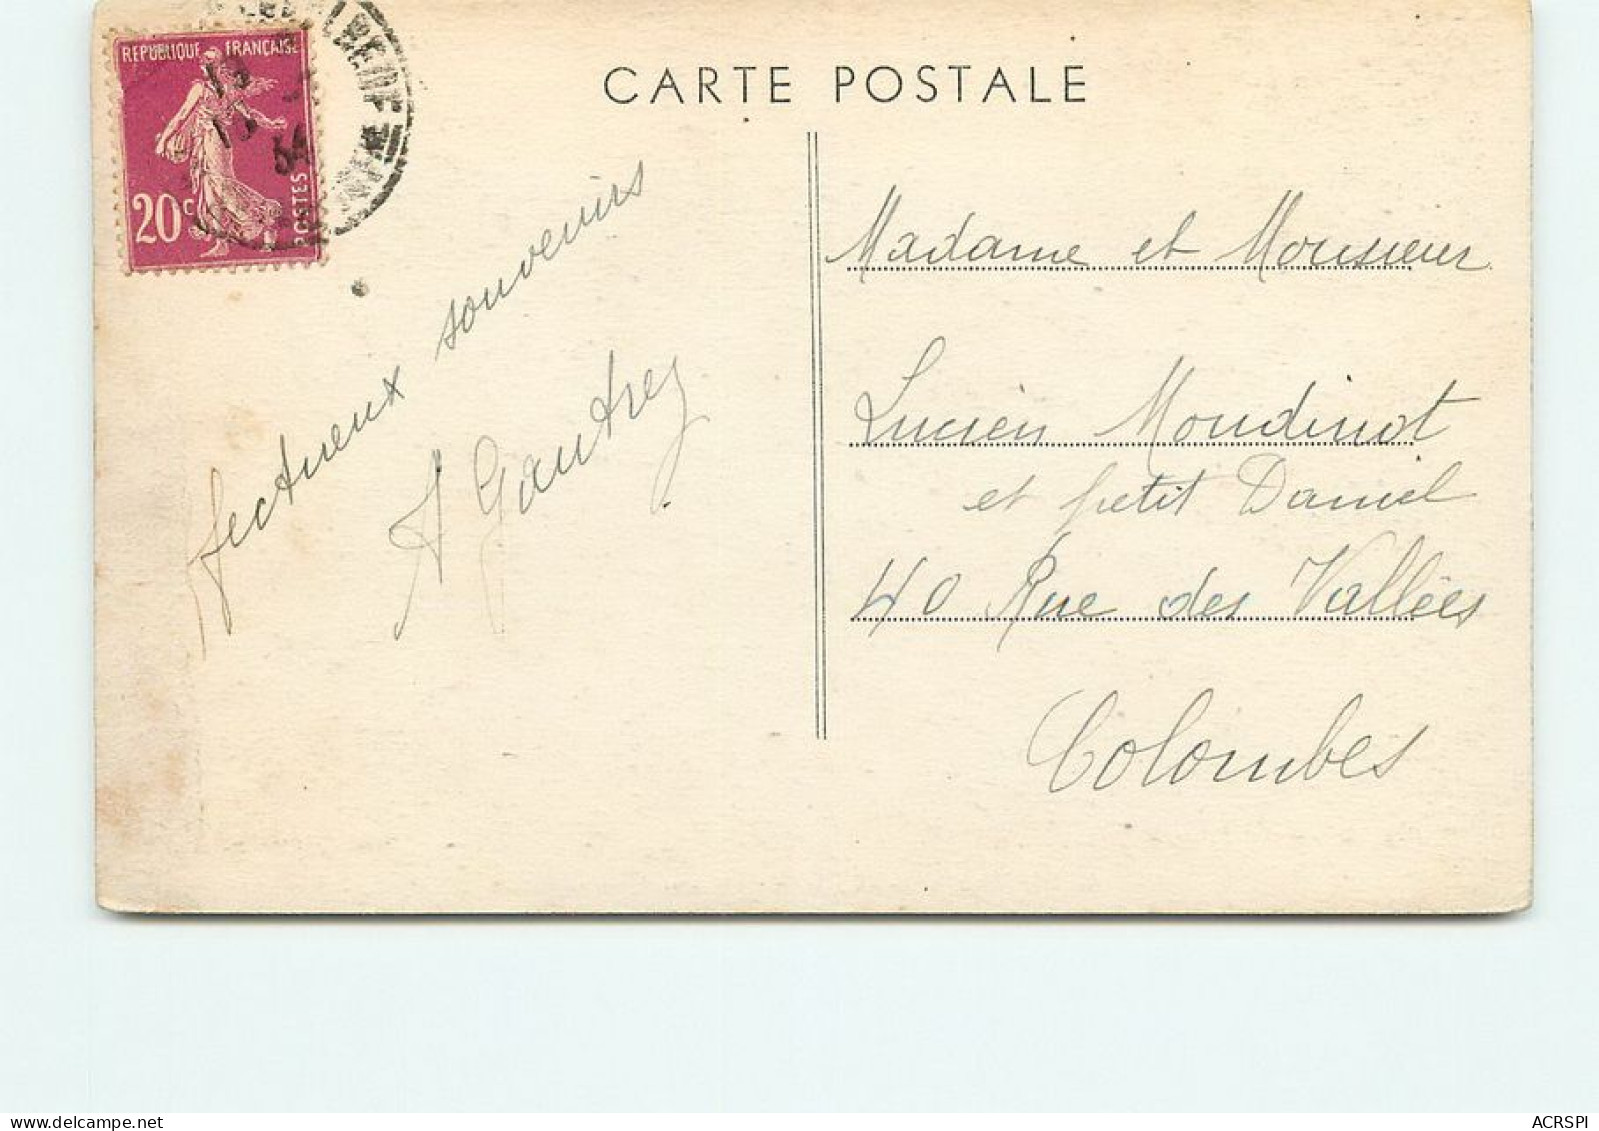 CARTE POSTALE
REPUBLIQUE FRANÇAISE
20c
POSTES
13
34
ffectueux souvenirs
A Gautrey
Madame et Monsieur
Lucien Moudinot
et petit Daniel
40 Rue des Vallées
Colombes
ACRSPI